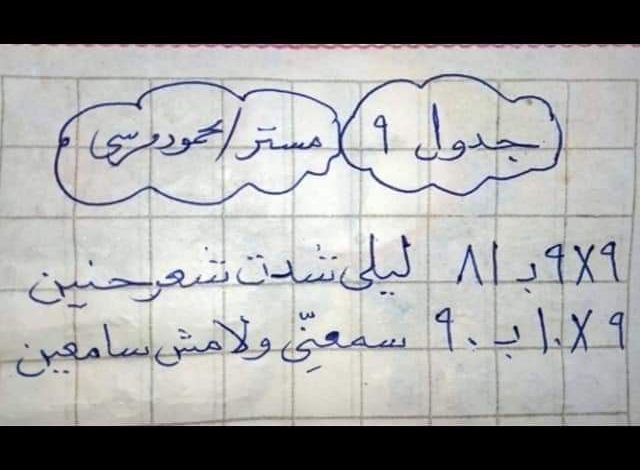 جدول ٩ مستر / محمود مرسي
٩×٩ بـ ٨١ ليلى شدت شعر حنين
٩×١٠ بـ ٩٠ سمعنّي ولا مش سامعين